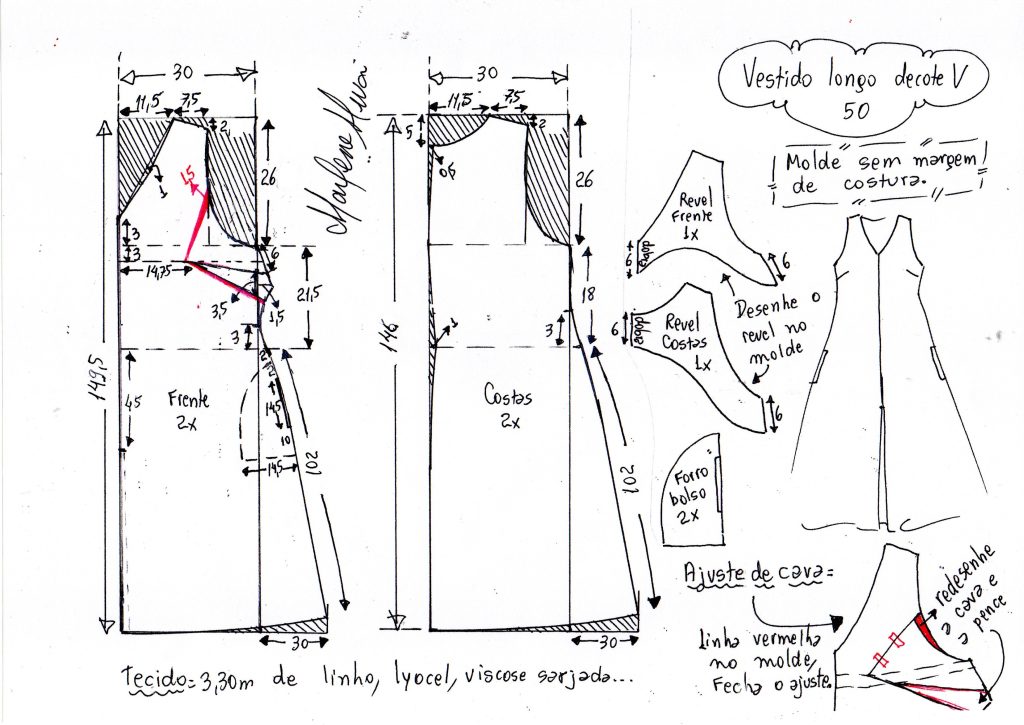 Vestido longo decote V
50
Molde sem margem
de costura.
Marlene Mukai
30
11,5
7,5
2
26
1,5
1
3
3
14,75
6
3,5
1,5
21,5
3
149,5
45
Frente
2x
14,5
10
14,5
102
30
30
11,5
7,5
2
5
26
146
18
3
1
Costas
2x
102
30
Revel
Frente
1x
dobra
6
6
Revel
Costas
1x
dobra
6
6
Desenhe o
revel no
molde
Forro
bolso
2x
Ajuste de cava=
Linha vermelha
no molde,
Fecha o ajuste.
redesenhe
a cava e
a pence
Tecido= 3,30m de linho, lyocel, viscose sarjada...